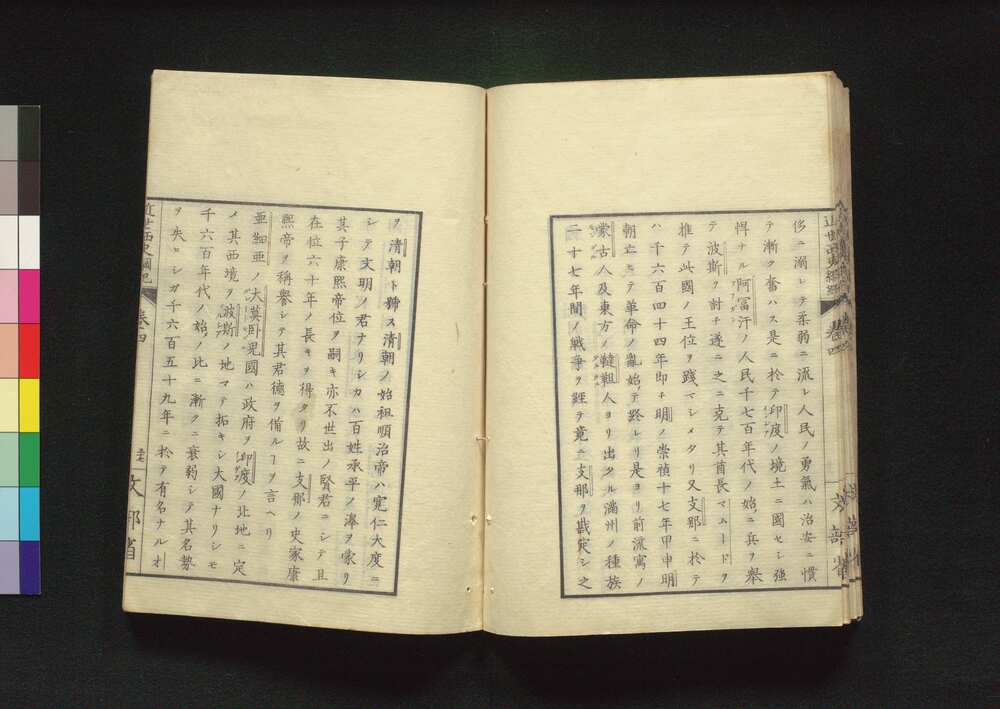 侈ニ溺レテ柔弱ニ流レ人民ノ勇氣ハ治安ニ慣
テ漸ク奮ハス是ニ於テ印度ノ境土ニ國セシ強
悍ナル阿富汗ノ人民千七百年代ノ始ニ兵ヲ舉
テ波斯ヲ討チ遂ニ之ニ克テ其酋長マムードヲ
推テ此國ノ王位ヲ踐マシメタリ又支那ニ於テ
ハ千六百四十四年即チ明ノ崇禎十七年甲申明
朝亡ヒテ革命ノ亂始テ終レリ是ヨリ前流寇ノ
蒙古人及東方ノ韃靼人ヨリ出タル滿州ノ種族
二十七年間ノ戰爭ヲ經テ竟ニ支那ヲ戡定シ之
ヲ清朝ト號ス清朝ノ始祖順治帝ハ寛仁大度ニ
シテ文明ノ君ナリシカハ百姓承平ノ澤ヲ蒙リ
其子康熙帝位ヲ嗣キ亦不世出ノ賢君ニシテ且
在位六十年ノ長キヲ得タリ故ニ支那ノ史家康
熙帝ヲ稱譽シテ其君德ヲ備ルヿヲ言ヘリ
亜細亜ノ大莫卧児國ハ政府ヲ印度ノ北地ニ定
メ其西境ヲ波斯ノ地マテ拓キシ大國ナリシモ
千六百年代ノ始ノ比ニ漸クニ衰弱シテ其名勢
ヲ失ヒシガ千六百五十九年ニ於テ有名ナルオ
近世西史綱紀
卷四
文部省